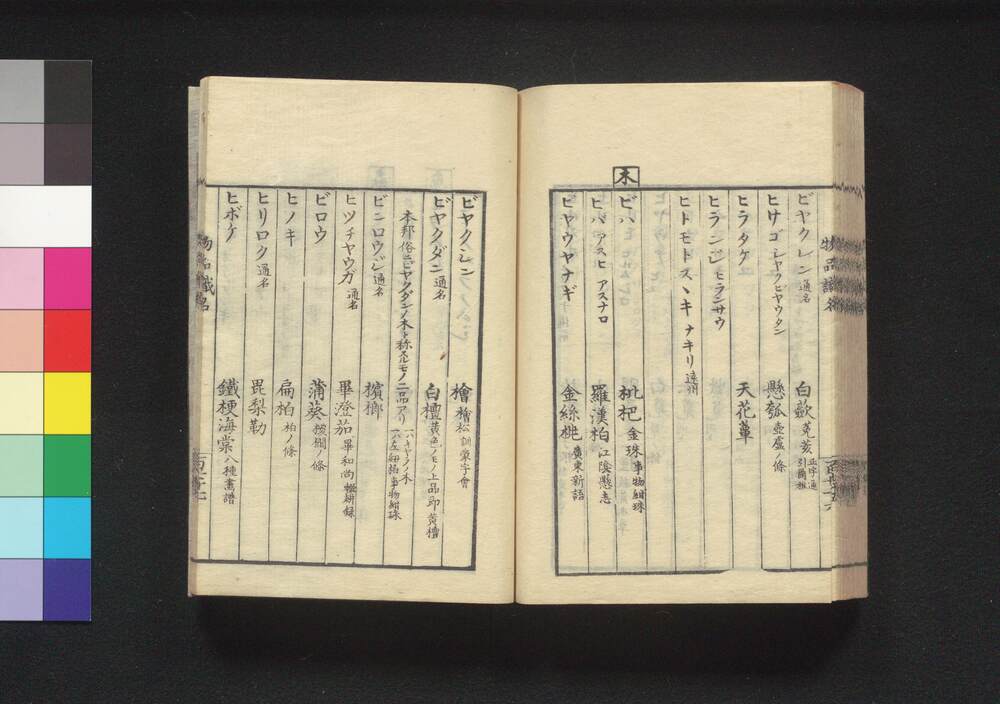 ビヤクレン 通名 白歛 菟荄 正字通引爾雅
ヒサゴ シヤクビヤウタン 懸瓠 壺盧ノ條
ヒラタケ 天花蕈
ヒランジ ヒランサウ
ヒトモトスヽキ ナキリ 遠州
木
ビハ 枇杷 金珠 事物紺珠
ヒバ アスヒ アスナロ 羅漢柏 江陰縣志
ビヤウヤナギ 金絲桃 廣東新語
物品識名
ビヤクシン 檜 檜松 訓蒙字會
ビヤクダン 通名 白檀 黄色ノモノ上品即黄檀
本邦俗ニビヤクダンノ木ト称スルモノ二品アリ 一ハキヤラノ木
ビンロウジ 通名 檳榔
ヒツチヤウガ 通名 畢澄茄 畢和尚 輟耕録
ビロウ 蒲葵 椶櫚ノ條
ヒノキ 扁柏 柏ノ條
ヒリロク 通名 毘梨勒
ヒボケ 鐵梗海棠 八種畫譜
物品識名